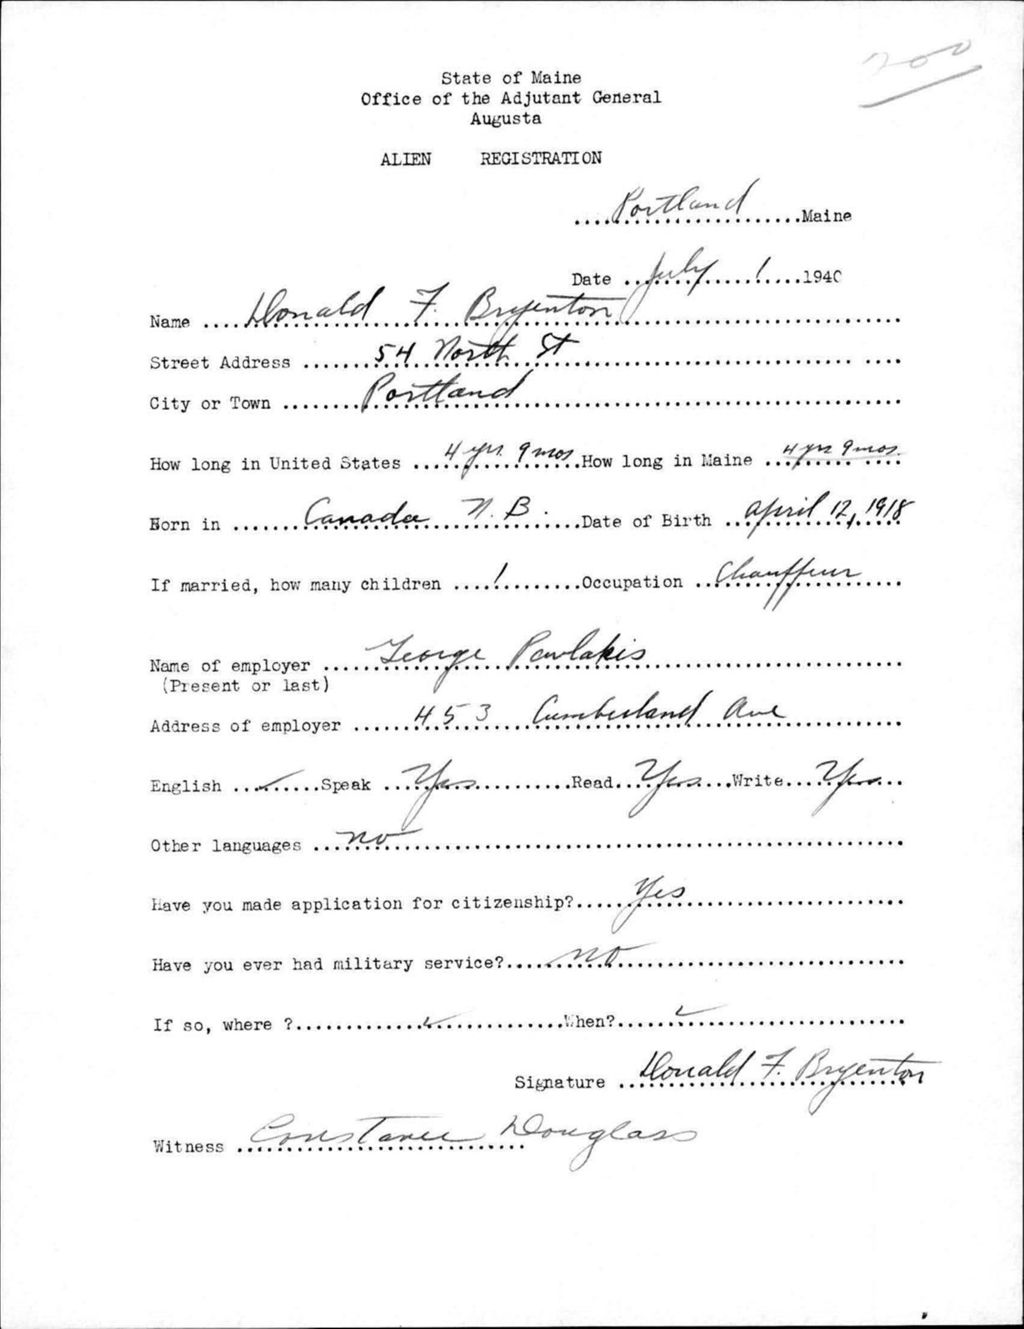 200
State of Maine
Office of the Adjutant General
Augusta
ALIEN REGISTRATION
....Portland....Maine
Date ..July 1....1940
Name ....Donald F. Bryenton....
Street Address ....54 North St....
City or Town ....Portland....
How long in United States ....4 yrs. 9 mos....How long in Maine ...4 yrs 9 mos....
Born in ....Canada N.B.....Date of Birth ..April 12, 1918
If married, how many children ....1....Occupation ..Chauffeur....
Name of employer ....George Pavlakis....
(Present or last)
Address of employer ....453 Cumberland Ave....
English ..✓....Speak ...Yes....Read...Yes...Write...Yes...
Other languages ...no....
Have you made application for citizenship?....Yes....
Have you ever had military service?....no....
If so, where ?....✓....When?....✓....
Signature ..Donald F. Bryenton
Witness ..Constance Douglass